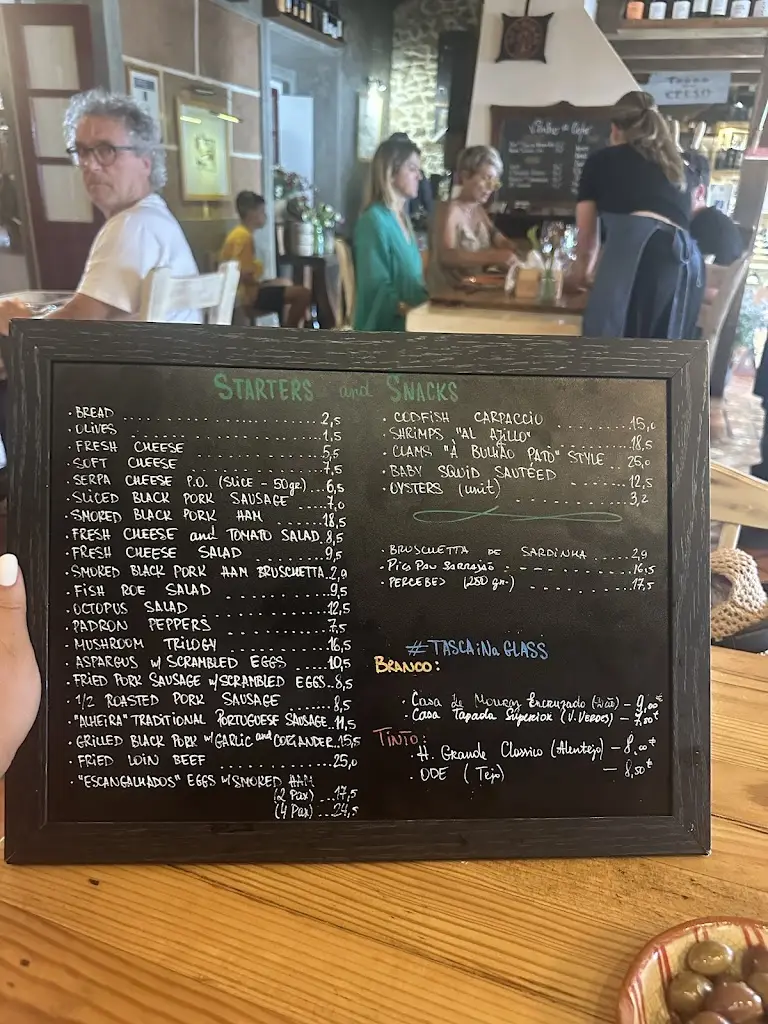 STARTERS and SNACKS
· BREAD .................... 2,5
· OLIVES .................... 1,5
· FRESH CHEESE .................... 5,5
· SOFT CHEESE .................... 7,5
· SERPA CHEESE P.O. (SLICE - 50gr.) ... 6,5
· SLICED BLACK PORK SAUSAGE ........ 7,0
· SMOKED BLACK PORK HAM ........ 18,5
· FRESH CHEESE and TOMATO SALAD. 8,5
· FRESH CHEESE SALAD ............ 9,5
· SMOKED BLACK PORK HAM BRUSCHETTA. 2,9
· FISH ROE SALAD ............ 9,5
· OCTOPUS SALAD ............ 12,5
· PADRON PEPPERS ............ 7,5
· MUSHROOM TRILOGY ............ 16,5
· ASPARGUS W/ SCRAMBLED EGGS .... 10,5
· FRIED PORK SAUSAGE W/ SCRAMBLED EGGS.. 8,5
· 1/2 ROASTED PORK SAUSAGE ...... 8,5
· "ALHEIRA" TRADITIONAL PORTUGUESE SAUSAGE.. 11,5
· GRILLED BLACK PORK W/ GARLIC and CORIANDER.. 15,5
· FRIED LOIN BEEF ............ 25,0
· "ESCANGALHADOS" EGGS W/ SMOKED HAM
(2 PAX) ... 17,5
(4 PAX) ... 24,5
· CODFISH CARPACCIO .......... 15,0
· SHRIMPS "AL AJILLO" .......... 18,5
· CLAMS "À BULHÃO PATO" STYLE .. 25,0
· BABY SQUID SAUTÉED .......... 12,5
· OYSTERS (unit) .......... 3,2
· BRUSCHETTA DE SARDINHA ..... 2,9
16,5
· PERCEBES (250 gr.) ........ 17,5
# TASCA iNa GLASS
BRANCO:
· Casa de Mouraz Encruzado (Dão) - 9,00€
· Casa Tapada Superior (V. VERDES) - 7,50€
TINTO:
· H. Grande Classico (Alentejo) - 8,00€
· ODE (Tejo) - 8,50€